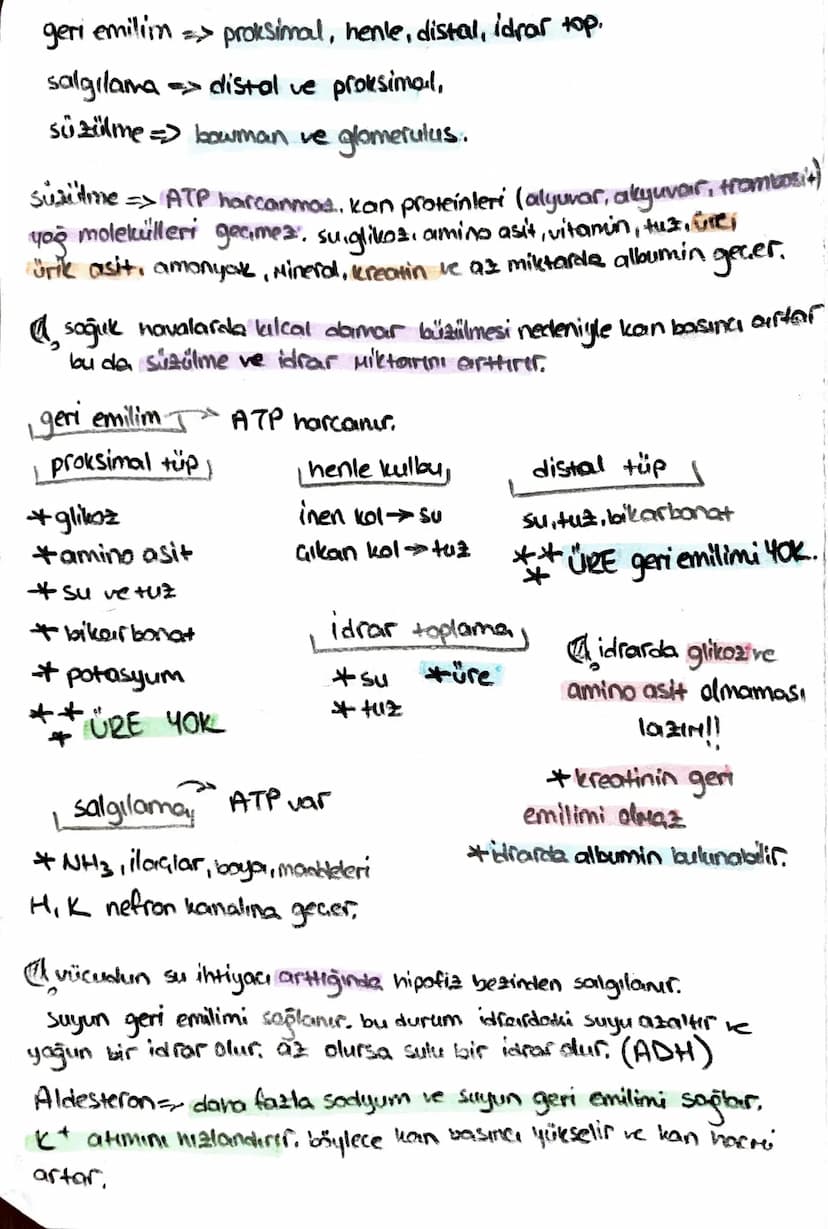 geri emilim => proksimal, henle, distal, idrar top.
salgılama => distal ve proksimal,
süzülme => bowman ve glomerulus.
süzülme => ATP harcanmaz. kan proteinleri (alyuvar, akyuvar, trombosit)
yağ molekülleri geçmez. su, glikoz, amino asit, vitamin, tuz, üre,
ürik asit, amonyak, mineral, kreatin ve az miktarda albumin geçer.
soğuk havalarda kılcal damar büzülmesi nedeniyle kan basıncı artar
bu da süzülme ve idrar miktarını arttırır.
geri emilim -> ATP harcanır.
proksimal tüp
*glikoz
*amino asit
*su ve tuz
*bikarbonat
*potasyum
*** ÜRE YOK
henle kulbu
inen kol → su
çıkan kol → tuz
distal tüp
su, tuz, bikarbonat
*** ÜRE geri emilimi YOK.
idrar toplama
*su *üre
*tuz
idrarda glikoz ve
amino asit olmaması
lazım!!
*kreatinin geri
emilimi olmaz
*idrarda albumin bulunabilir.
salgılama → ATP var
*NH3, ilaçlar, boya, maddeleri
H, K nefron kanalına geçer.
vücudun su ihtiyacı arttığında hipofiz bezinden salgılanır.
suyun geri emilimi sağlanır. bu durum idrardaki suyu azaltır ve
yağun bir idrar olur. az olursa sulu bir idrar olur. (ADH)
Aldesteron => daha fazla sodyum ve suyun geri emilimi sağlar.
K+ atımını hızlandırır. böylece kan basıncı yükselir ve kan hacmi
artar.